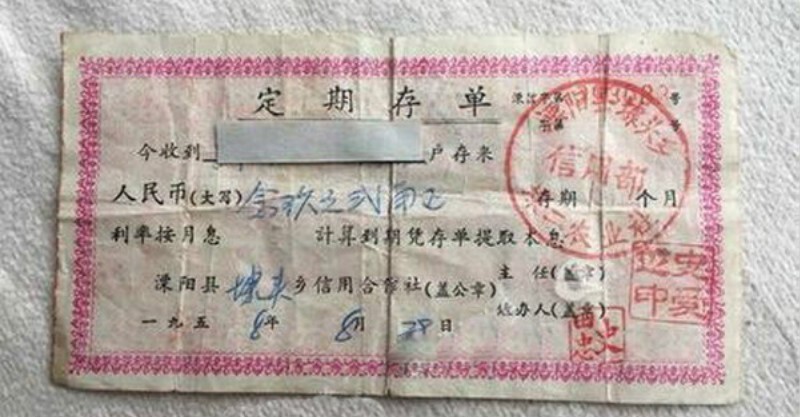 定期存单 号
今收到 户存来
人民币(大写) 玖元弍角正 存期 个月
利率按月息 计算到期凭存单提取本息
信用部
溧阳县 埭头 乡信用合作社(盖公章) 主任(盖章)
经办人(盖章)
一九五8年 8月 29日